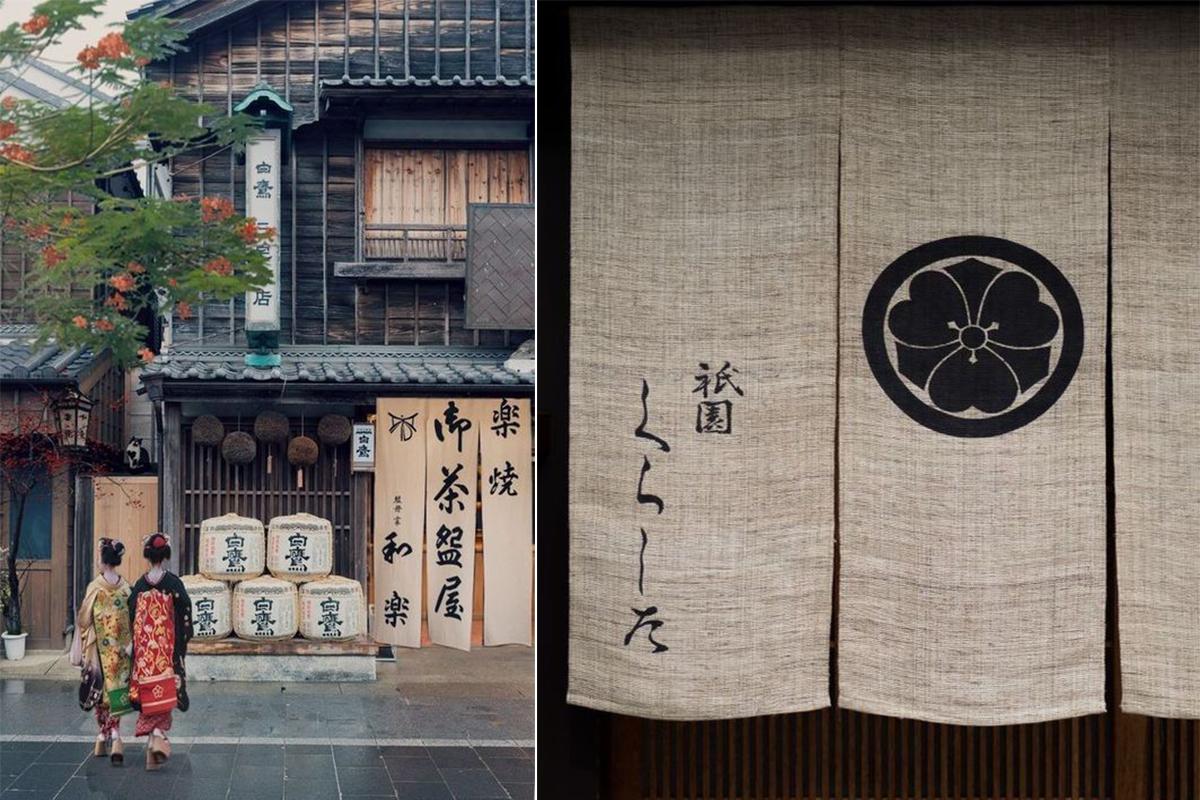 白鷹
三
店
白鷹
楽焼
御茶盌屋
和楽
白鷹
白鷹
白鷹
白鷹
白鷹
祇園
くらした